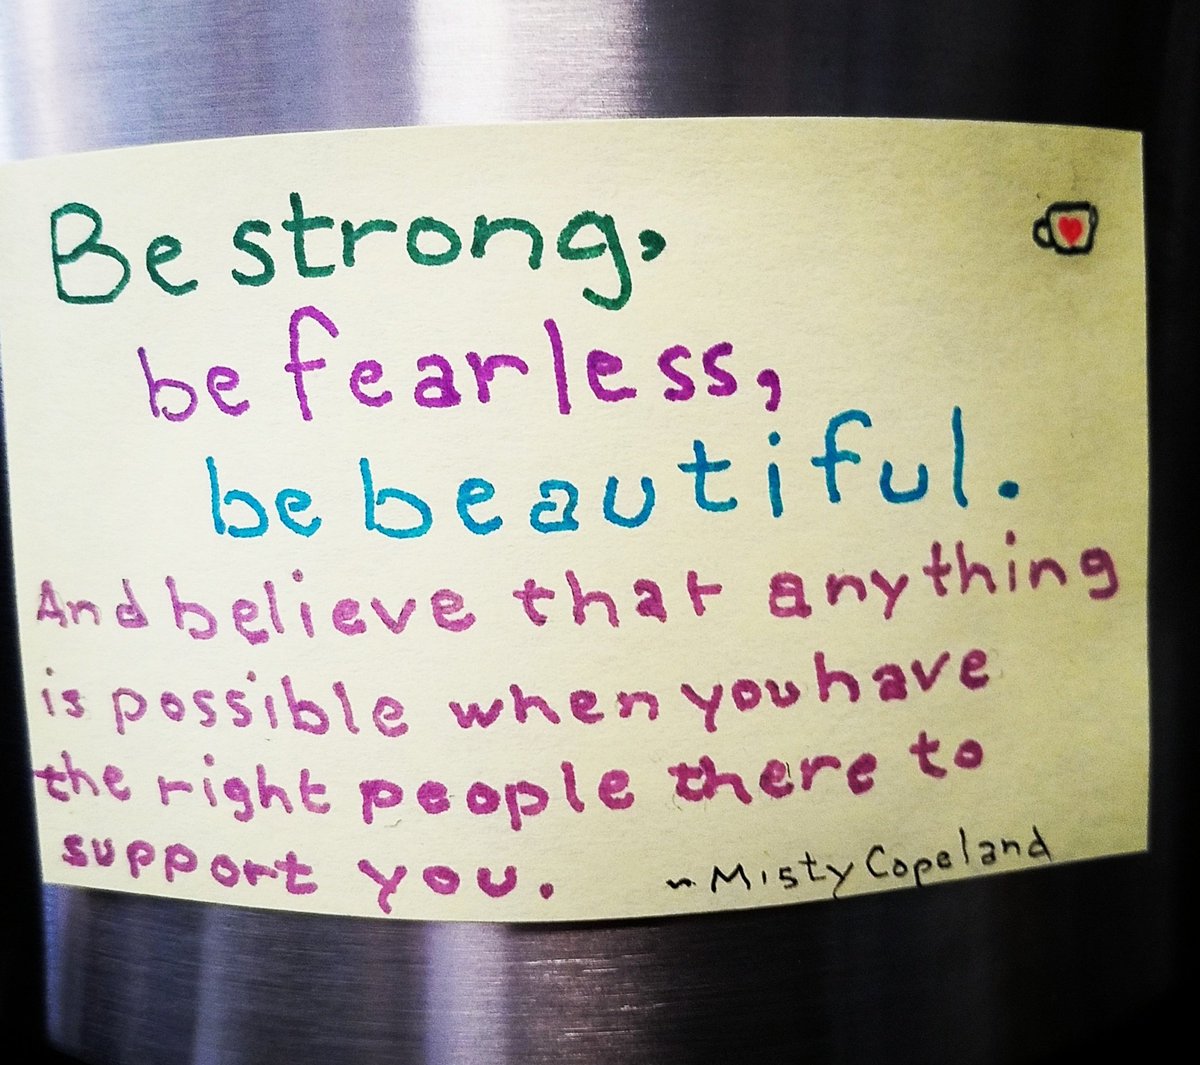 Be strong,
be fearless,
be beautiful.
And believe that anything
is possible when you have
the right people there to
support you.
~ Misty Copeland